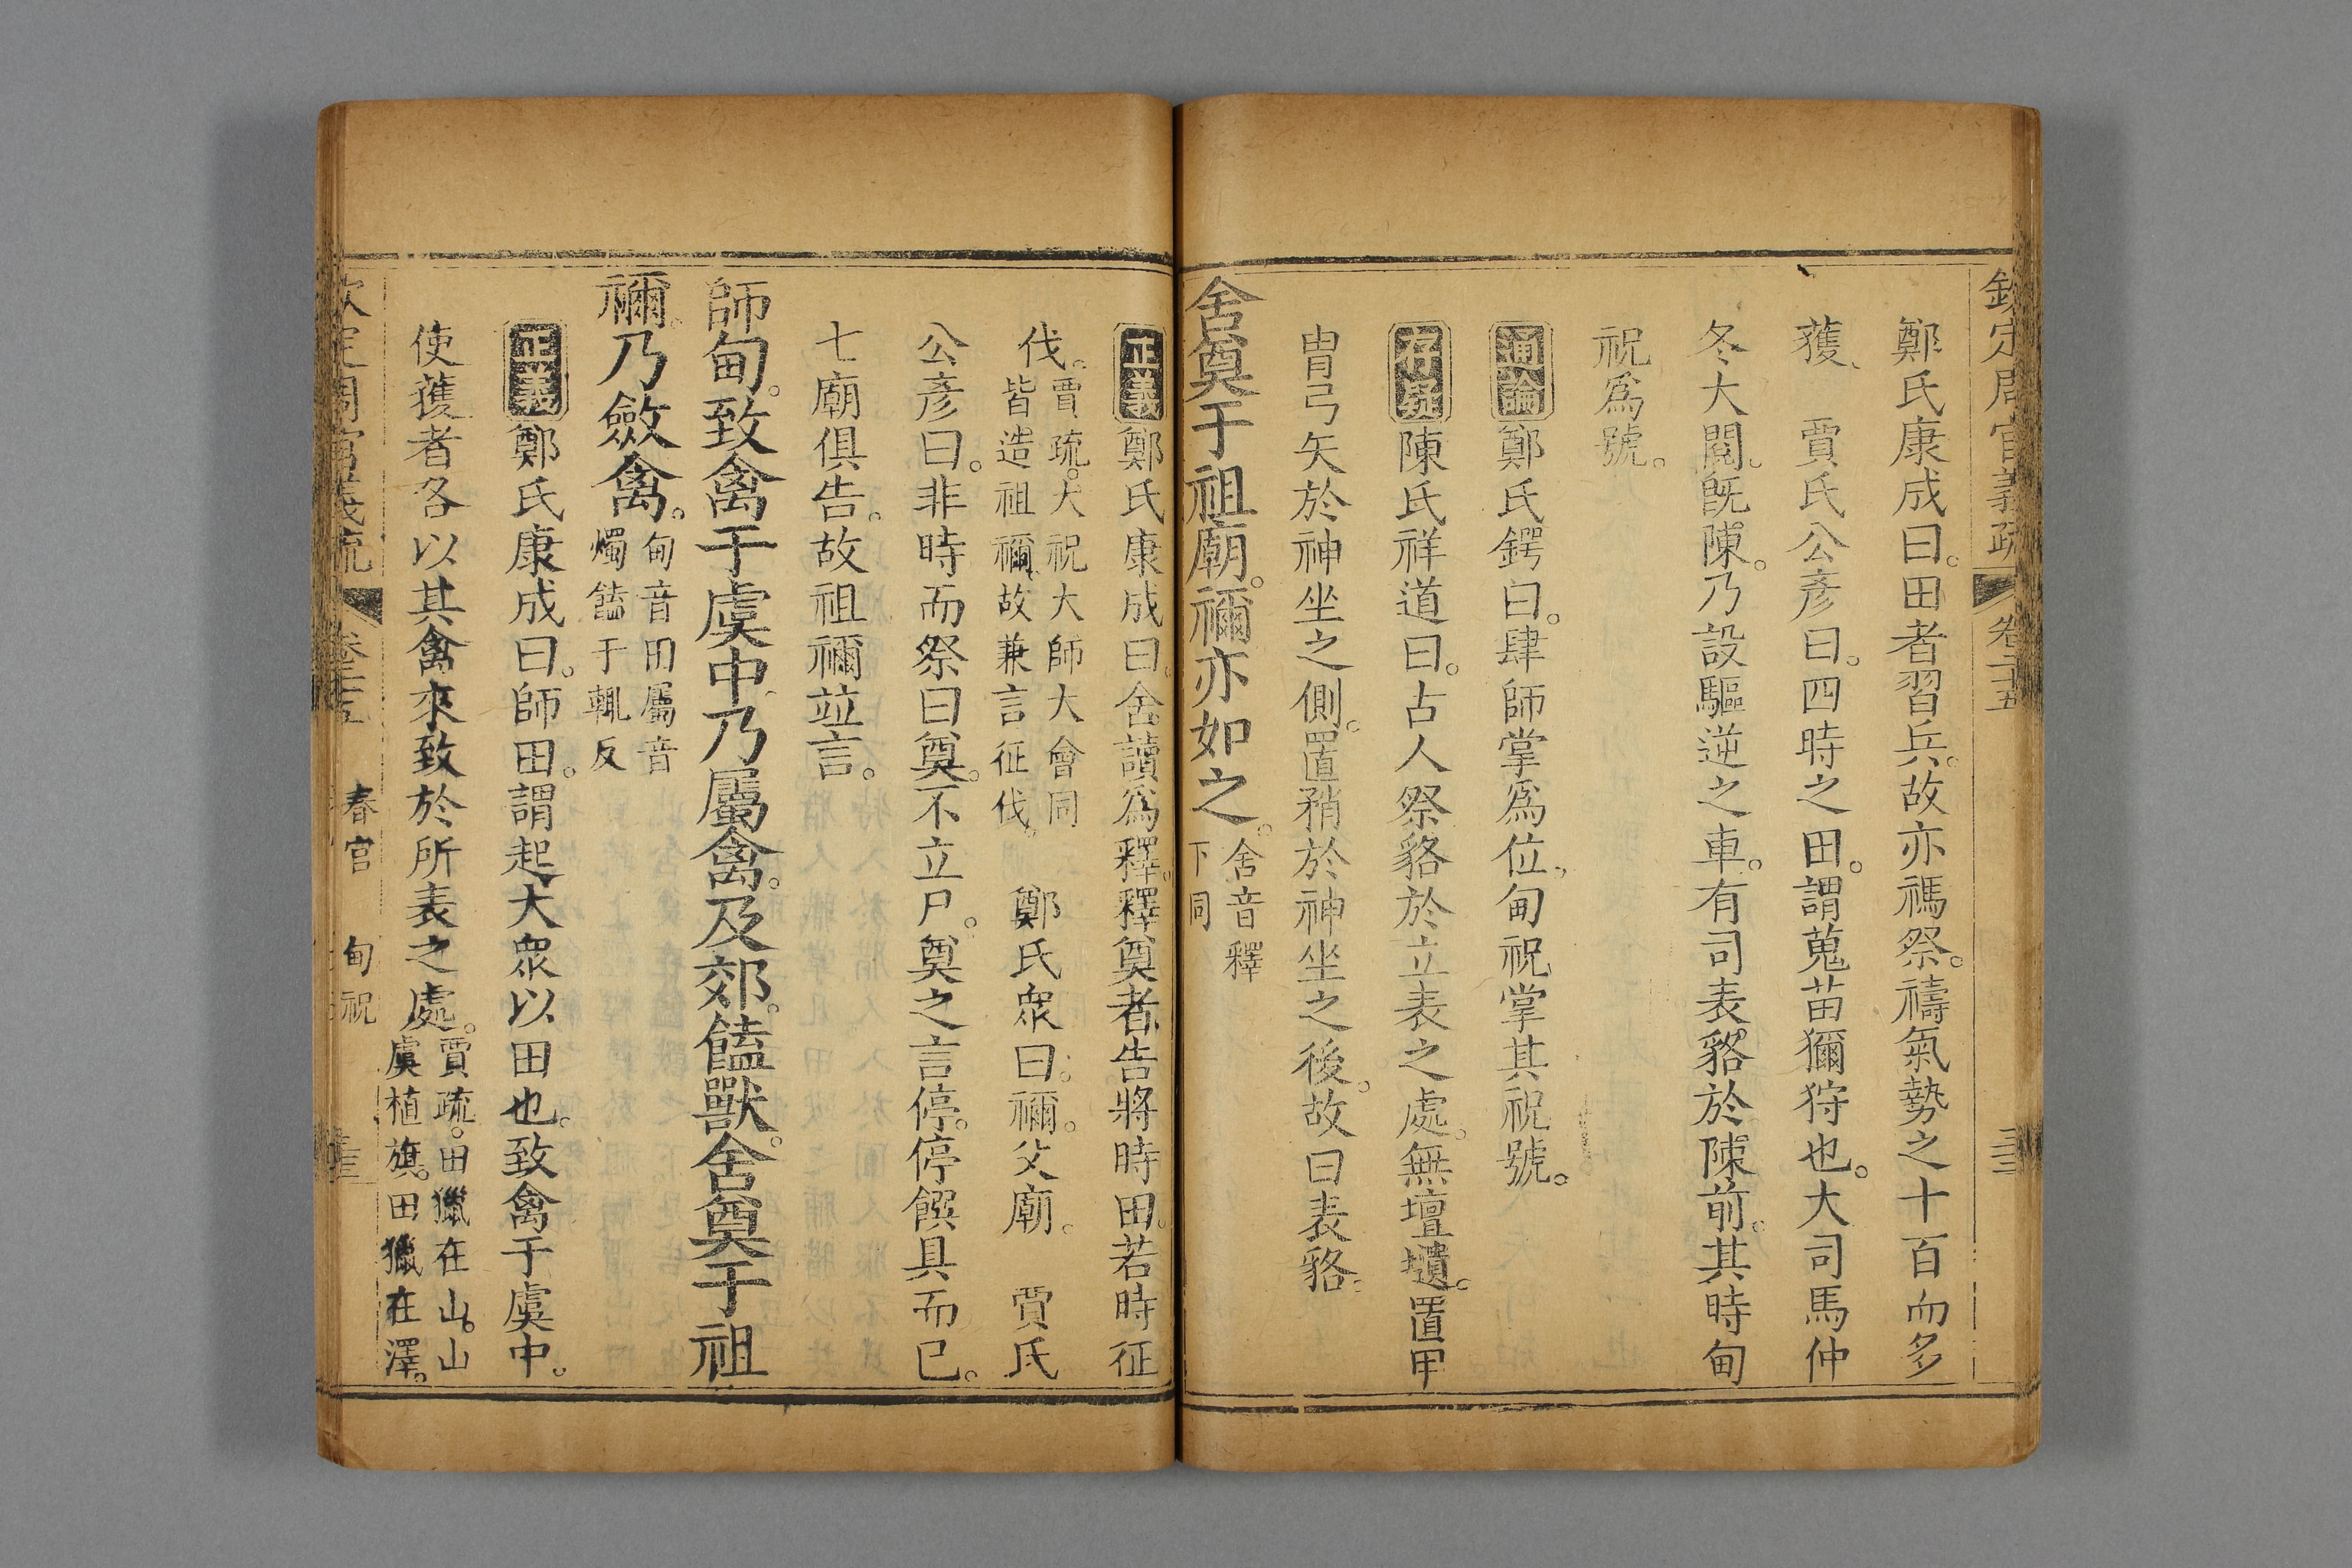 欽定周官義疏 卷二十五
鄭氏康成曰。田者習兵。故亦禡祭。禱氣勢之十百而多
獲、 賈氏公彥曰。四時之田。謂蒐苗獮狩也。大司馬仲
冬大閱。旣陳。乃設驅逆之車。有司表貉於陳前。其時甸
祝爲號。
通論鄭氏鍔曰。肆師掌爲位,甸祝掌其祝號。
存疑陳氏祥道曰。古人祭貉於立表之處。無壇壝。置甲
冑弓矢於神坐之側。置矟於神坐之後。故曰表貉。
舍奠于祖廟。禰亦如之。舍音釋
下同
正義鄭氏康成曰。舍讀爲釋。釋奠者。告將時田。若時征
伐。賈疏。大祝大師大會同
皆造祖禰。故兼言征伐。 鄭氏衆曰。禰。父廟。 賈氏
公彥曰。非時而祭曰奠。不立尸。奠之言停。停饌具而已。
七廟俱告。故祖禰竝言。
師甸。致禽于虞中。乃屬禽。及郊。饁獸。舍奠于祖
禰。乃斂禽。甸音田屬音
燭饁于輒反
正義鄭氏康成曰。師田。謂起大衆以田也。致禽于虞中。
使獲者各以其禽來致於所表之處。賈疏。田獵在山。山
虞植旗。田獵在澤。
欽定周官義疏 卷二十五 春官 甸祝